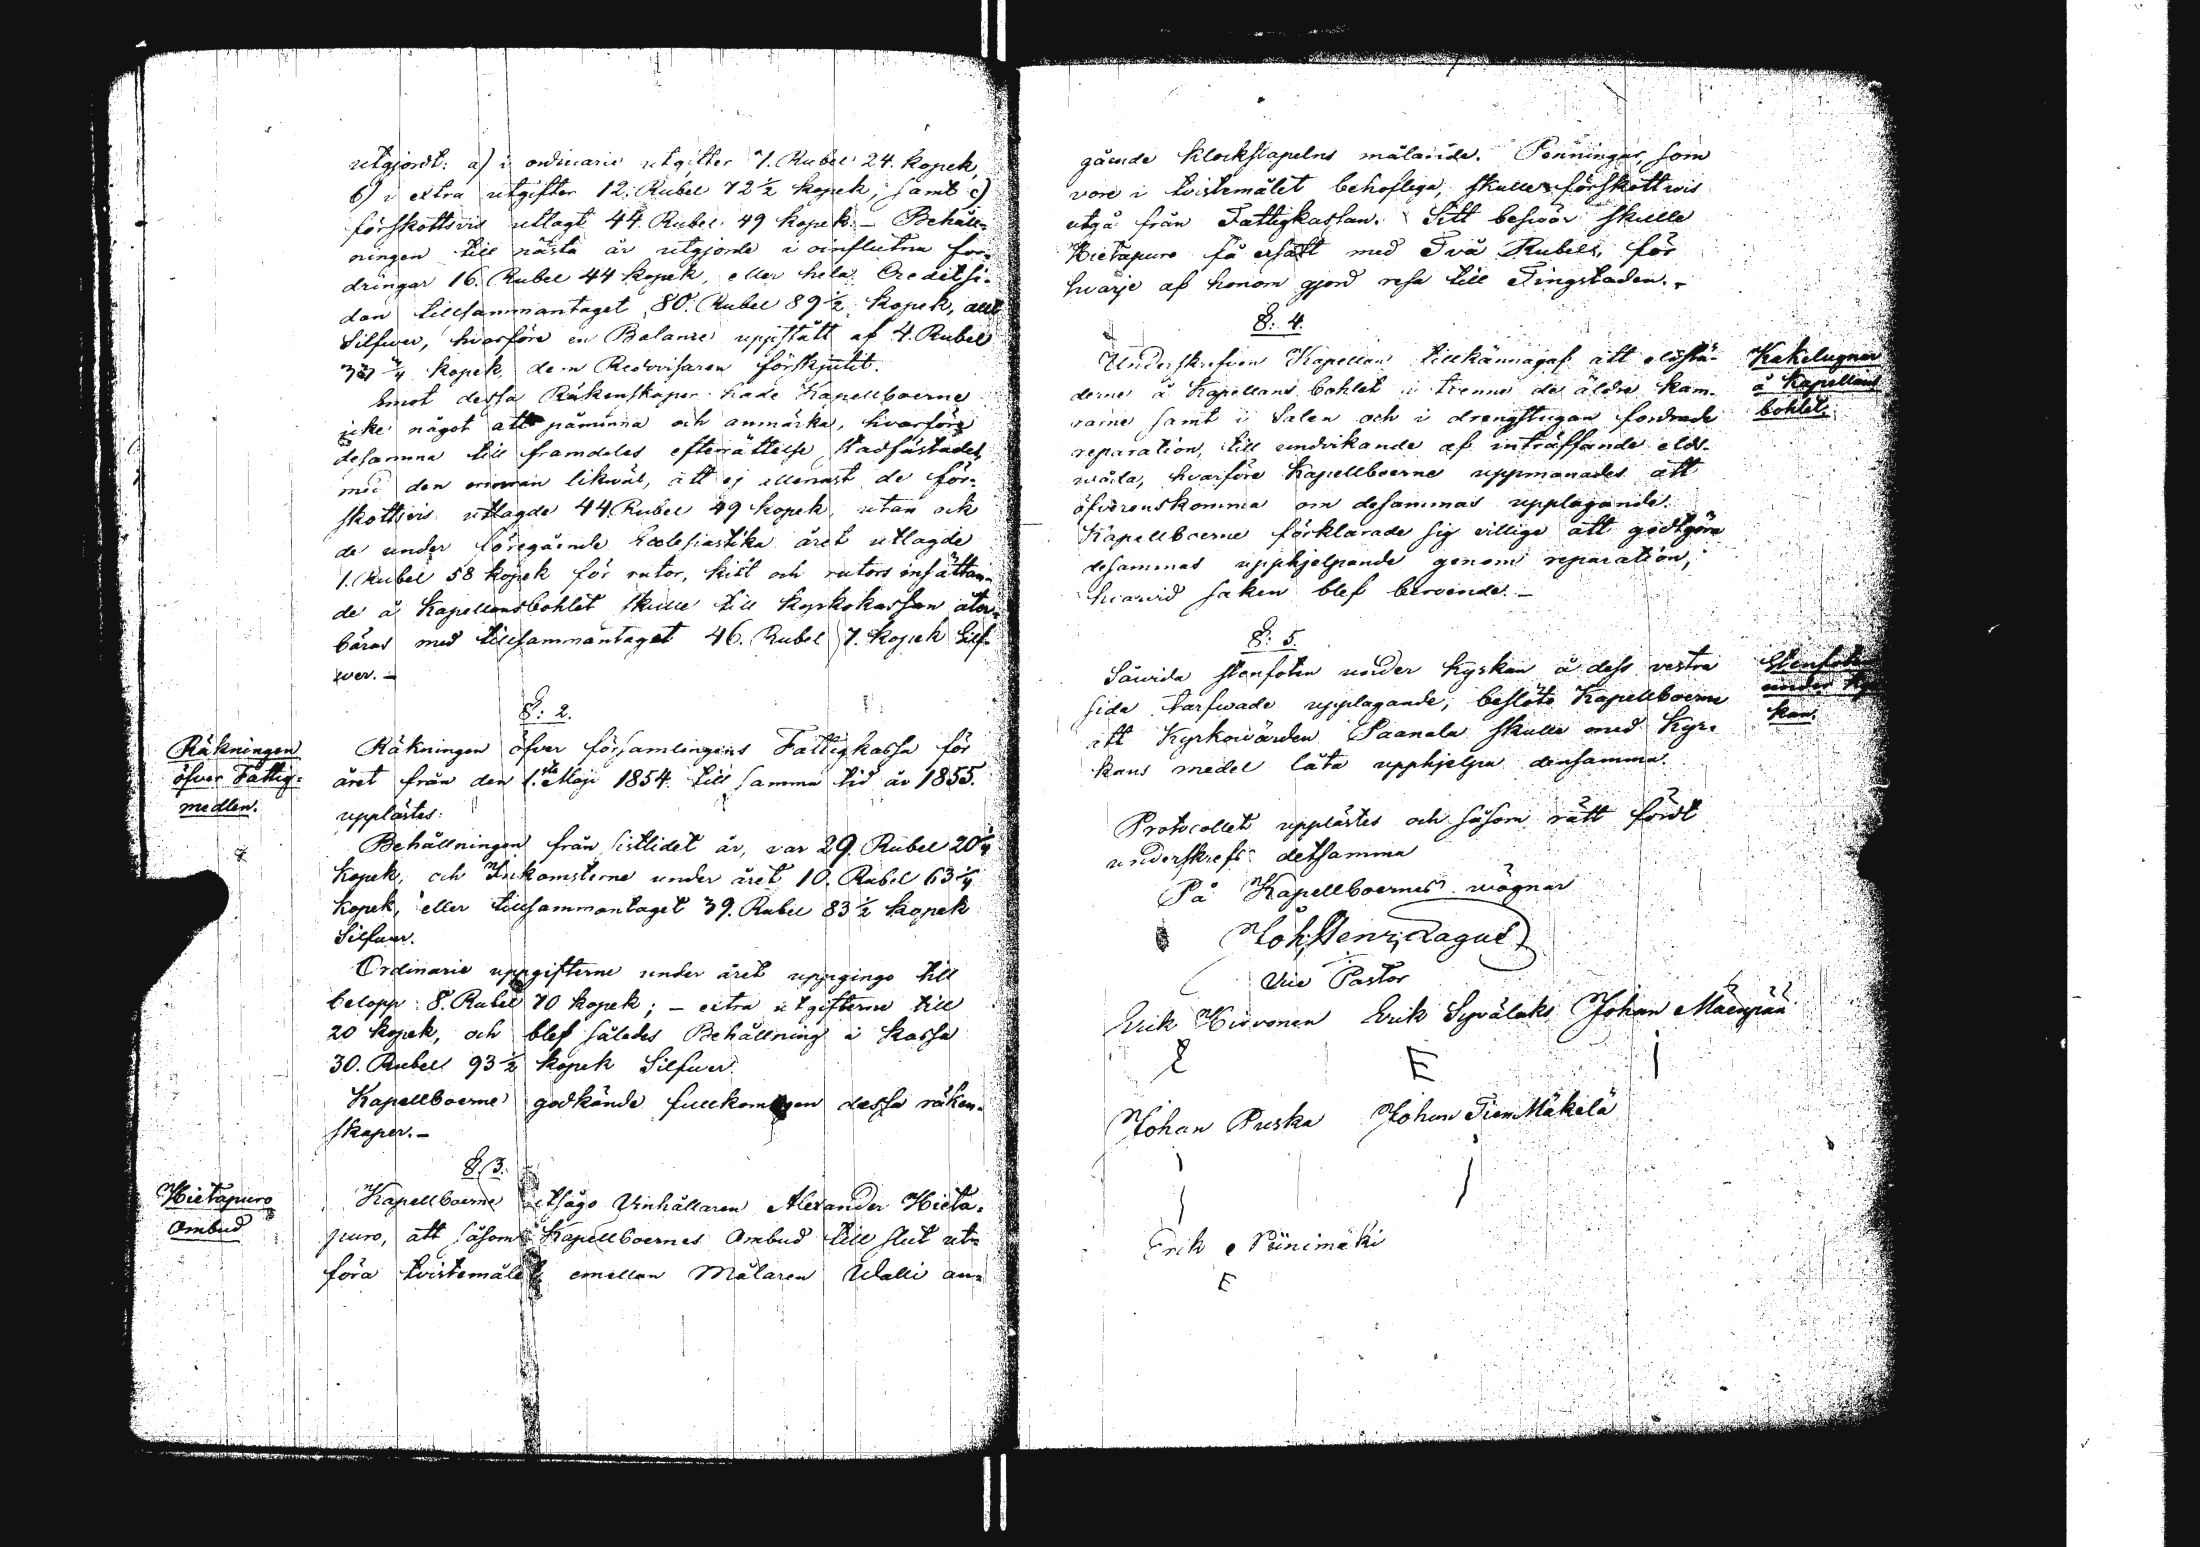 utgjordt: a) i ordinarie utgifter 7. Rubel 24. kopek,
b) i extra utgifter 12. Rubel 72 ½ kopek, samt c)
förskottsvis utlagt 44 Rubel 49 kopek. – Behåll-
ningen till nästa år utgjorde i oinflutna for-
dringar 16. Rubel 44 kopek, eller hela Creditsi-
dan tillsammantaget 80. Rubel 89 ½ kopek, allt
Silfwer, hvarföre en Balance uppstått af 4. Rubel
kopek, dem Redovisaren förskjutit.
Emot dessa Räkenskaper hade Kapellboerne
icke något att påminna och anmärka, hvarföre
desamma till framdeles efterrättelse stadfästades,
med den likwäl, att ej allenast de för-
skottsvis utlagde 44. Rubel 49 kopek, utan ock
de under föregående Ecclesiastika året utlagde
1. Rubel 58 kopek för rutor, kitt och rutors insättan-
de å Kapellansbohlet skulle till Kyrkokassan åter-
bäras med tillsammantaget 46. Rubel 7. kopek Silf-
wer. –
§: 2.
Räkningen
öfver Fattig-
medlen.
Räkningen öfver församlingens Fattigkassa för
året från den 1. Maji 1854 till samma tid år 1855.
upplästes:
Behållningen från sistlidet år, var 29. Rubel 20 ¼
kopek, och Inkomsterne under året 10. Rubel 63 ¼
kopek, eller tillsammantaget 39. Rubel 83 ½ kopek
Silfwer.
Ordinarie uppgifterne under året uppgingo till
belopp 8. Rubel 70 kopek; – extra utgifterne till
20 kopek, och blef således Behållning i kassa
30. Rubel 93 ½ kopek Silfwer.
Kapellboerne godkände fullkomligen dessa räken-
skaper. –
§. 3.
Hietapuro
Ombud
Kapellboerne utsågo Vinhållaren Alexander Hieta-
puro, att såsom Kapellboernes Ombud till slut ut-
föra tvistemålet emellan Målaren Walli an-
gående klockstapelns målande. Penningar, som
vore i tvistemålet behöfliga, skulle förskottsvis
utgå från Fattigkassan. Sitt beswär skulle
Hietapuro få ersatt med Två Rubel, för
hwarje af honom gjord resa till Tingstaden. –
§: 4.
Kakelugnar
å Kapellans
bohlet.
Underskrefven Kapellan tillkännagaf att eldstä-
derne å Kapellans bohlet i trenne de äldre kam-
rarne samt i Salen och i drengstugan fordrade
reparation, till undvikande af inträffande elds-
wåda, hvarföre Kapellboerne uppmanades att
öfverenskomma om desammas upplagande.
Kapellboerne förklarade sig villige att godtgöra
desammas upphjelpande genom reparation,
hvarvid saken blef beroende. –
§: 5.
Stenfoten
under Kyr-
kan.
Såvida stenfoten under Kyrkan å dess vestra
sida tarfwade upplagande, beslöto Kapellboerne
att Kyrkowärden Paanala skulle med Kyr-
kans medel låta upphjelpa densamma.
Protocollet upplästes och såsom rätt fördt
underskrefs detsamma
På Kapellboernes wägnar
Joh. Henr. Lagus
Vice Pastor
Erik Hirvonen Erik Syvälaks Johan Mäenpää
E
Johan Puska Johan Mäkelä
Erik Niinimäki
E